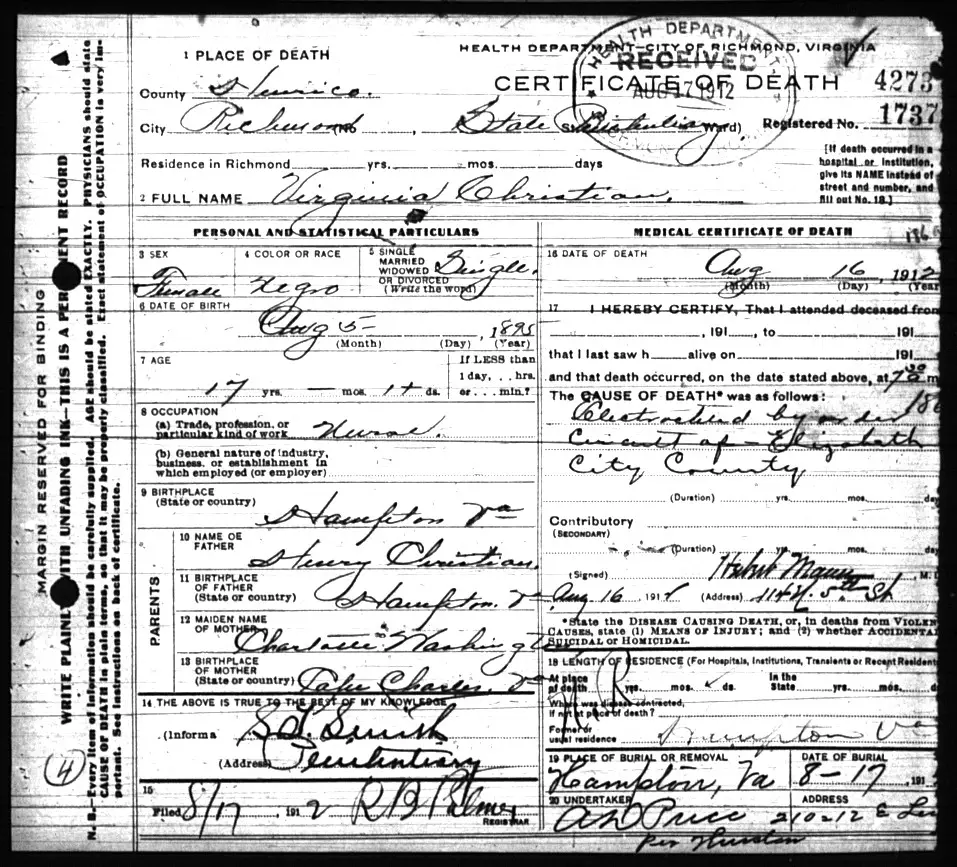 HEALTH DEPARTMENT—CITY OF RICHMOND, VIRGINIA
CERTIFICATE OF DEATH
HEALTH DEPARTMENT
RECEIVED
AUG 17 1912
4273
Registered No. 1737
[If death occurred in a
hospital or institution,
give its NAME instead of
street and number, and
fill out No. 18.]
1 PLACE OF DEATH
County Henrico.
City Richmond No , State St. Penitentiary Ward)
Residence in Richmond yrs. mos. days
2 FULL NAME Virginia Christian.
PERSONAL AND STATISTICAL PARTICULARS
3 SEX
Female
4 COLOR OR RACE
Negro
5 SINGLE
MARRIED
WIDOWED
OR DIVORCED
(Write the word)
Single.
6 DATE OF BIRTH
Aug 5 1895
(Month) (Day) (Year)
7 AGE
17 yrs. — mos. 1+ ds.
If LESS than
1 day, . . hrs.
or . . . min.?
8 OCCUPATION
(a) Trade, profession, or
particular kind of work Nurse.
(b) General nature of industry,
business, or establishment in
which employed (or employer)
9 BIRTHPLACE
(State or country)
Hampton Va
PARENTS
10 NAME OF
FATHER
Henry Christian.
11 BIRTHPLACE
OF FATHER
(State or country)
Hampton. Va
12 MAIDEN NAME
OF MOTHER
Charlotte Washington
13 BIRTHPLACE
OF MOTHER
(State or country)
Charles. Va
14 THE ABOVE IS TRUE TO THE BEST OF MY KNOWLEDGE
(Informa Smith
(Address) Penitentiary
15
Filed 8/17 1912 R B Palmer
REGISTRAR
MEDICAL CERTIFICATE OF DEATH
186
16 DATE OF DEATH
Aug 16 , 1912
(Month) (Day) (Year
17 I HEREBY CERTIFY, That I attended deceased from
, 191 , to 191
that I last saw h alive on 191
and that death occurred, on the date stated above, at 7 30 m
The CAUSE OF DEATH* was as follows: 186
Electrocuted by order
Circuit of Elizabeth
City County
(Duration) yrs. mos. day
Contributory
(SECONDARY)
(Duration) yrs. mos. da
(Signed) Herbert Mann M. D
Aug 16 191 2 (Address) 114 N. 5th St
*State the DISEASE CAUSING DEATH, or, in deaths from VIOLEN
CAUSES, state (1) MEANS OF INJURY; and (2) whether ACCIDENTAL
SUICIDAL OR HOMICIDAL.
18 LENGTH OF RESIDENCE (For Hospitals, Institutions, Transients or Recent Resident
At place
of death yrs. mos. ds.
In the
State yrs. mos. ds
Where was disease contracted,
If not at place of death?
Former or
usual residence Hampton Va
19 PLACE OF BURIAL OR REMOVAL
Hampton, Va
DATE OF BURIAL
8-17 , 191
20 UNDERTAKER
A D Price
ADDRESS
210-12 E
per
MARGIN RESERVED FOR BINDING
WRITE PLAINLY WITH UNFADING INK—THIS IS A PERMANENT RECORD
N. B.—Every item of information should be carefully supplied. AGE should be stated EXACTLY. PHYSICIANS should state
CAUSE OF DEATH in plain terms, so that it may be properly classified. Exact statement of OCCUPATION is very im-
portant. See instructions on back of certificate.
4